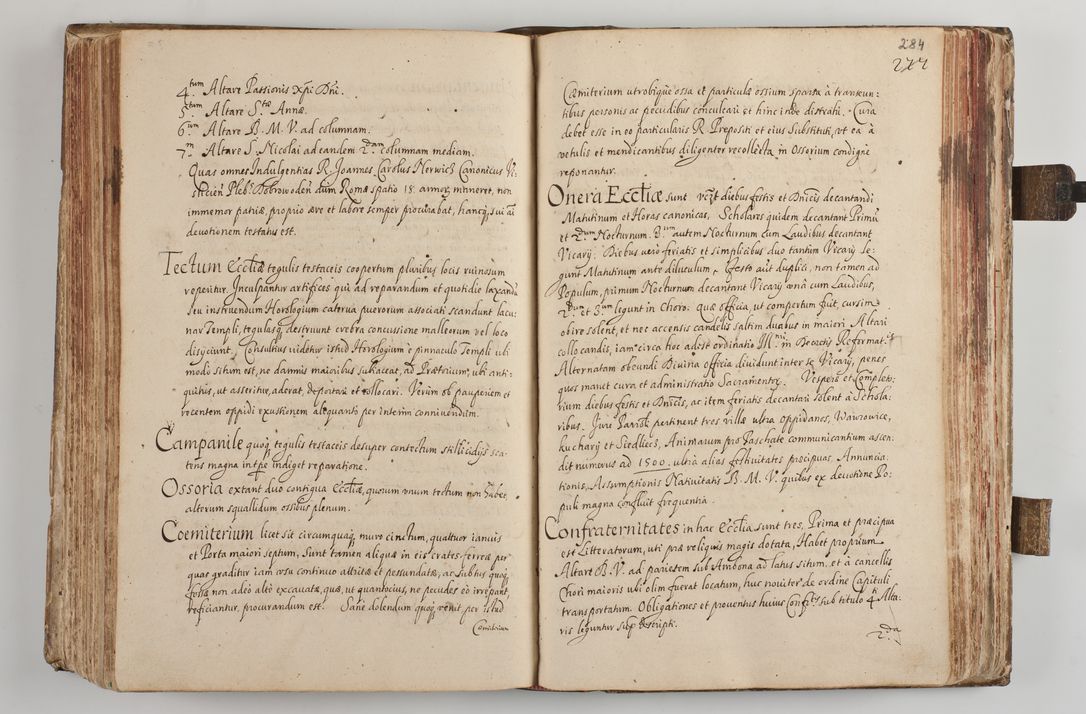 4.tum Altare Passionis Xpi Dni.
5.tum Altare S.tæ Annæ.
6.um Altare B. M. V. ad columnam.
7.m Altare S. Nicolai ad eandem 2.dam columnam mediam.
Quas omnes Indulgentias R. Joannes Carolus Herwich Canonicus
Pleb. Dobrowoden dum Romæ spatio 18. annor, maneret, non
immemor patriæ, proprio ære et labore semper procurabat, hancq, sui
devotionem testatus est.
Tectum Eccliæ tegulis testaceis coopertum pluribus locis ruinosum
reperitur. Inculpantur artifices qui ad reparandum et quotidie laxandu
seu instruendum Horologium caterva puerorum associati scandunt lacu
nar Templi, tegulasq, destruunt crebra concussione malleorum vel loco
disijciunt. Consultius videtur istud Horologium è pinnaculo Templi ubi
modo situm est, ne damnis maioribus subiaceat, ad Prætorium, ubi anti:
quitus, ut asseritur, aderat, deportari et collocari. Verùm ob pauperiem et
recentem oppidi exustionem aliquanti per interim connivendum.
Campanile quoq, tegulis testaceis desuper contectum stillicidijs sca:
tens magna in tpe indiget reparatione.
Ossoria extant duo contigua Eccliæ, quorum unum tectum non habet,
alterum squallidum ossibus plenum.
Coemiterium licet sit circumquaq, muro cinctum, quattuor ianuis
et Porta maiori septum, Sunt tamen aliquæ in eis crates ferreæ per
quas graditur iam usu continuo attritæ et pessundatæ, ac subtus quoq,
fossæ non adeò altè excavatæ, quæ, ut quantocius, ne pecudes eò irrepant,
reficiantur, procurandum est. Sanè dolendum quoq, venit per istud
Cæmiterium
284
277
Cæmiterium utrobique ossa et particulæ ossium sparsa à transeun:
tibus personis ac pecudibus conculcari et hinc inde distrahi. Cura
debet esse in eo particularis R. Prepositi et eius Substituti, ut ea à
vetulis et mendicantibus diligenter recollecta in Ossorium condignè
reponantur.
Onera Eccliæ sunt diebus festis et Dnicis decantandi
Matutinum et Horas canonicas, Scholares quidem decantant Primū
et 2.dum Nocturnum. 3.um autem Nocturnum cum Laudibus decantant
Vicarij. Diebus verò feriatis et simplicibus duo tantùm Vicarij le:
gunt Matutinum ante diluculum, Festo aūt duplici, non tamen ad
Populum, primum Nocturnum decantant Vicarij unà cum Laudibus,
2.dum et 3.um legunt in Choro. quæ officia, ut compertum fuit, cursim
obire solent, et nec accensis candelis saltim duabus in maiori Altari
collocandis, iam circa hoc adest ordinatio in Decretis Reformat.
Alternatam obeundi Divina Officia dividunt inter se Vicarij, penes
quos manet cura et administratio Sacramentor. Vesperæ et Completo:
rium diebus festis et Dnicis, ac item feriatis decantari solent à Schola:
ribus. Jure Paroli pertinent tres villæ ultra oppidanos, Wawrowice,
Kucharij et Siedliecz, Animarum pro Paschate communicantium ascen:
dit numerus ad 1500. ultra alias festivitates præcipuas, Annuncia:
tionis, Assumptionis Nativitatis B. M. V. quibus ex devotione Po:
puli magna confluit frequentia.
Confraternitates in hac Ecclia sunt tres, Prima et præcipua
est Litteratorum, uti præ reliquis magis dotata, Habet proprium
Altare B. V. ad parietem sub Ambona ad latus situm, et à cancellis
Chori maioris ubi olim fuerat locatum, huc noviter de ordine Capituli
transportatum. Obligationes et proventus huius Confr.tis sub titulo 4.ti Alta:
ris leguntur sup descripti.
2.da